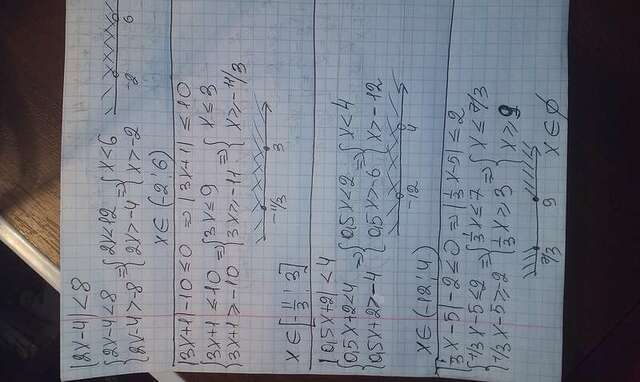 |2x-4|<8
{2x-4<8 ⇒ {2x<12 ⇒ {x<6
{2x-4>-8 {2x>-4 {x>-2
-2 6
x∈(-2;6)
|3x+1|-10≤0 ⇒ |3x+1|≤10
{3x+1≤10 ⇒ {3x≤9 ⇒ {x≤3
{3x+1≥-10 {3x≥-11 {x≥-11/3
-11/3 3
x∈[-11/3;3]
|0,5x+2|<4
{0,5x+2<4 ⇒ {0,5x<2 ⇒ {x<4
{0,5x+2>-4 {0,5x>-6 {x>-12
-12 4
x∈(-12;4)
|1/3x-5|-2≤0 ⇒ |1/3x-5|≤2
{1/3x-5≤2 ⇒ {1/3x≤7 ⇒ {x≤7/3
{1/3x-5≥-2 {1/3x≥3 {x≥9
7/3 9 x∈∅